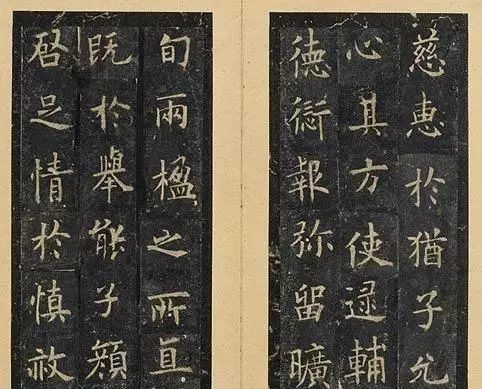 慈惠於猶子允
心其方使逮輔
德愆報弥留曠
旬兩楹之所直
既於舉能子顏
啓足情於慎赦